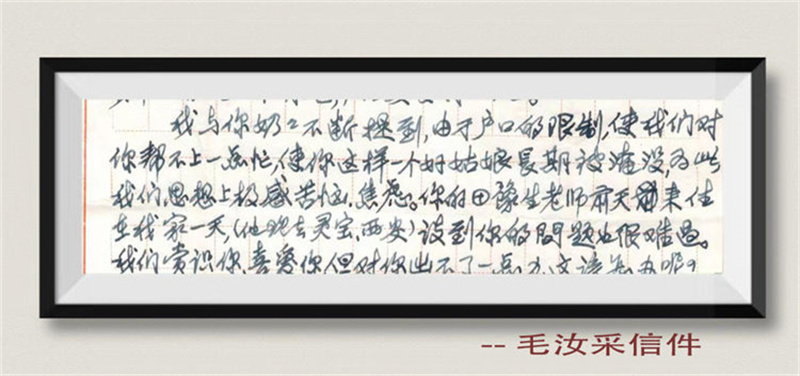 我与你奶奶不断提到,由于户口的限制,使我们对
你帮不上一点忙,使你这样一个好姑娘长期被淹没,为此
我们思想上极感苦恼、焦虑。你的田豫生老师前天来住
在我家一天,(他现去灵宝、西安)谈到你的问题也很难过。
我们赏识你、喜爱你,但对你出不了一点力
-- 毛汝采信件